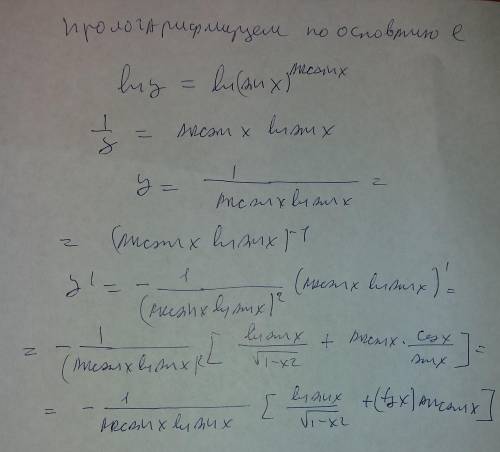 прологарифмируем по основанию e
ln y = ln(sin x)^arcsin x
1/y = arcsin x ln sin x
y = 1/(arcsin x ln sin x) =
= (arcsin x ln sin x)^-1
y' = - 1/(arcsin x ln sin x)^2 (arcsin x ln sin x)' =
= - 1/(arcsin x ln sin x)^2 [ ln sin x/√(1-x2) + arcsin x · cos x/sin x ] =
= - 1/(arcsin x ln sin x) [ ln sin x/√(1-x2) + (tg x) arcsin x ]